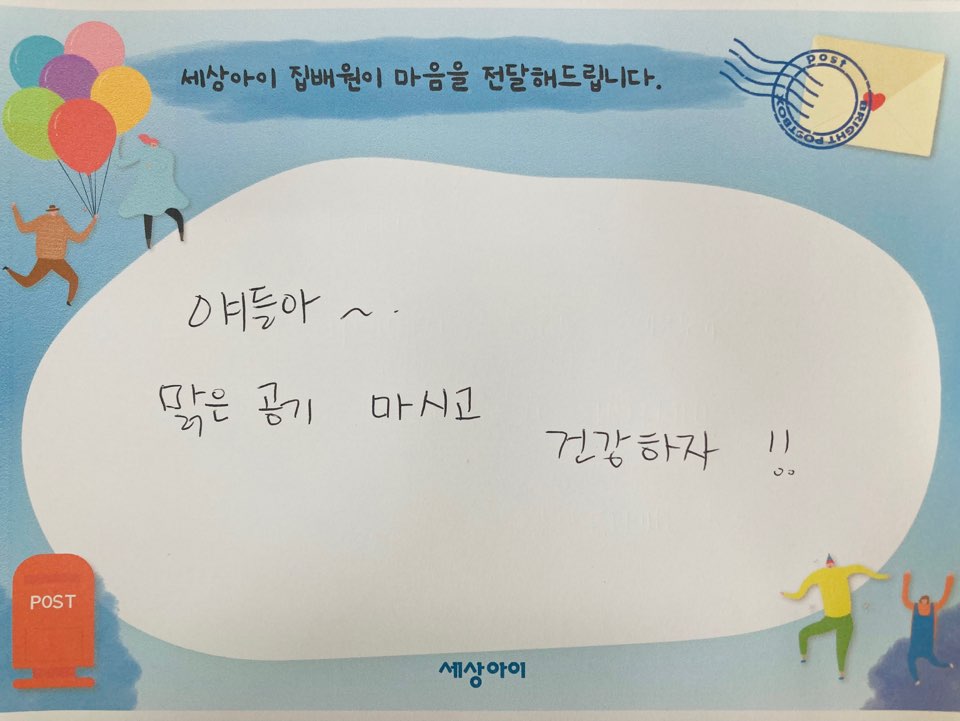 세상아이 집배원이 마음을 전달해드립니다.
post
BRIGHT POSTBOX
얘들아 ~.
맑은 공기 마시고
건강하자 !!
POST
세상아이